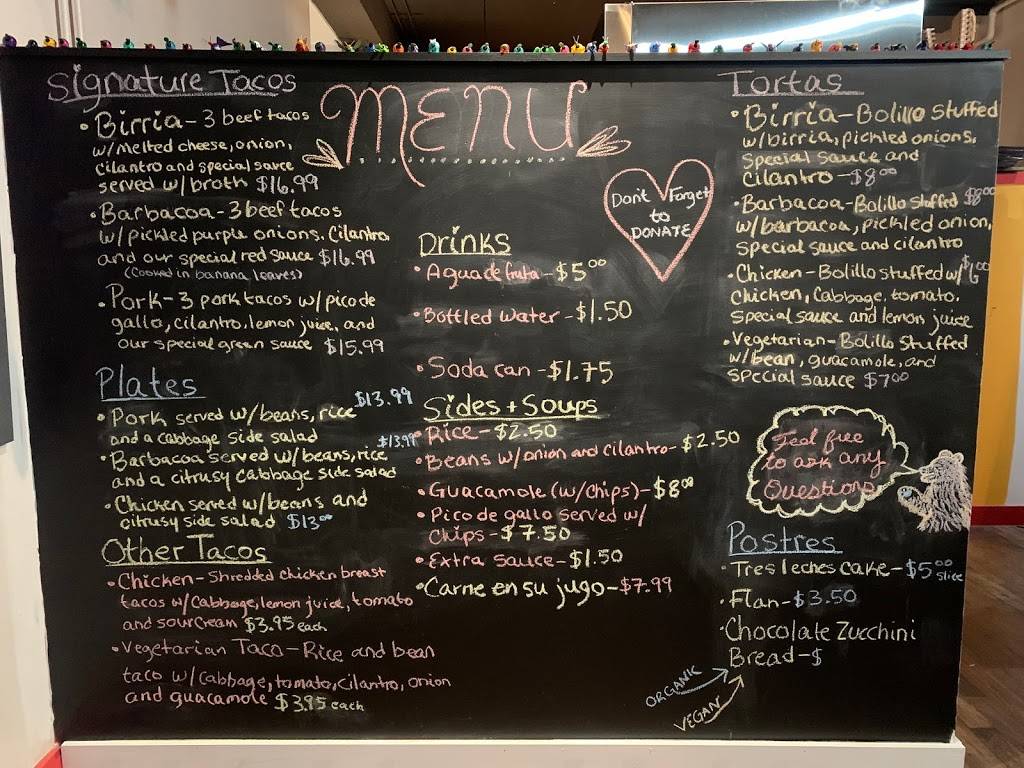 Signature Tacos
• Birria - 3 beef tacos
w/ melted cheese, onion,
cilantro and special sauce
served w/ broth $16.99
• Barbacoa - 3 beef tacos
w/ pickled purple onions. Cilantro
and our special red sauce $16.99
(Cooked in banana leaves)
• Pork - 3 pork tacos w/ pico de
gallo, cilantro, lemon juice, and
our special green sauce $15.99
Plates
• Pork served w/ beans, rice $13.99
and a cabbage side salad
• Barbacoa served w/ beans, rice $13.99
and a citrusy cabbage side salad
• Chicken served w/ beans and
citrusy side salad $13.00
Other Tacos
• Chicken - Shredded chicken breast
tacos w/ Cabbage, lemon juice, tomato
and sour cream $3.95 each
• Vegetarian Taco - Rice and bean
taco w/ cabbage, tomato, cilantro, onion
and guacamole $3.95 each
MENU
Don't Forget
to
DONATE
Drinks
• Agua de fruta - $5.00
• Bottled water - $1.50
• Soda can - $1.75
Sides + Soups
• Rice - $2.50
• Beans w/ onion and cilantro - $2.50
• Guacamole (w/ Chips) - $8.00
• Pico de gallo served w/
chips - $7.50
• Extra sauce - $1.50
• Carne en su jugo - $7.99
Tortas
• Birria - Bolillo Stuffed
w/ birria, pickled onions,
special sauce and
cilantro - $8.00
• Barbacoa - Bolillo Stuffed $8.00
w/ barbacoa, pickled onion,
special sauce and cilantro
• Chicken - Bolillo stuffed w/
Chicken, Cabbage, tomato,
special sauce and lemon juice
• Vegetarian - Bolillo Stuffed
w/ bean, guacamole, and
special sauce $7.00
Feel free
to ask any
Questions
Postres
• Tres leches cake - $5.00 slice
• Flan - $3.50
• Chocolate Zucchini
Bread - $
ORGANIC
VEGAN